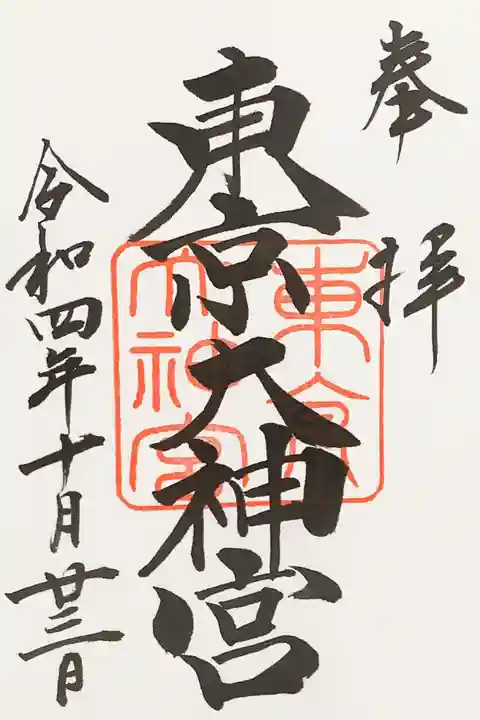 奉拝
東京大神宮
東京
大神宮
令和四年十月廿三日